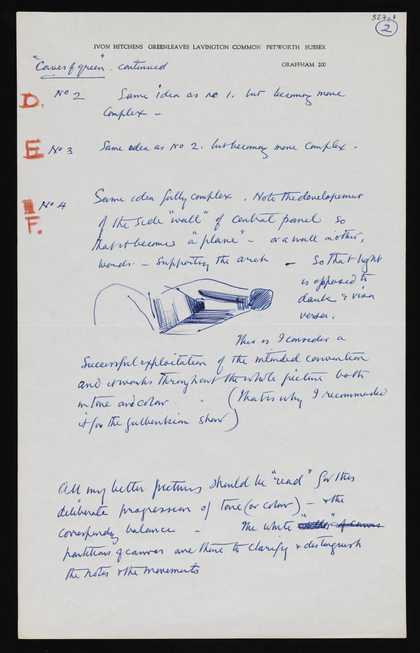 2
IVON HITCHENS GREENLEAVES LAVINGTON COMMON PETWORTH SUSSEX
GRAFFHAM 200
"Caves of green". continued
D. No 2 Same idea as no 1. but becoming more
complex -
E No 3 Same idea as No 2. but becoming more complex -
No 4 Same idea fully complex. Note the development
F. of the side "wall" of central panel so
that it becomes a "plane" - or a wall in other,
words. - supporting the arch - So that light
is opposed to
dark & vice
versa.
This is I consider a
successful exploitation of the intended convention
and it works throughout the whole picture both
in tone and colour - (That is why I recommended
it for the gulbenkian show)
All my better pictures should be "read" for this
deliberate progression of tone (or colour) - & the
corresponding balance - The white
partitions of canvas are there to clarify & distinguish
the notes & the movements